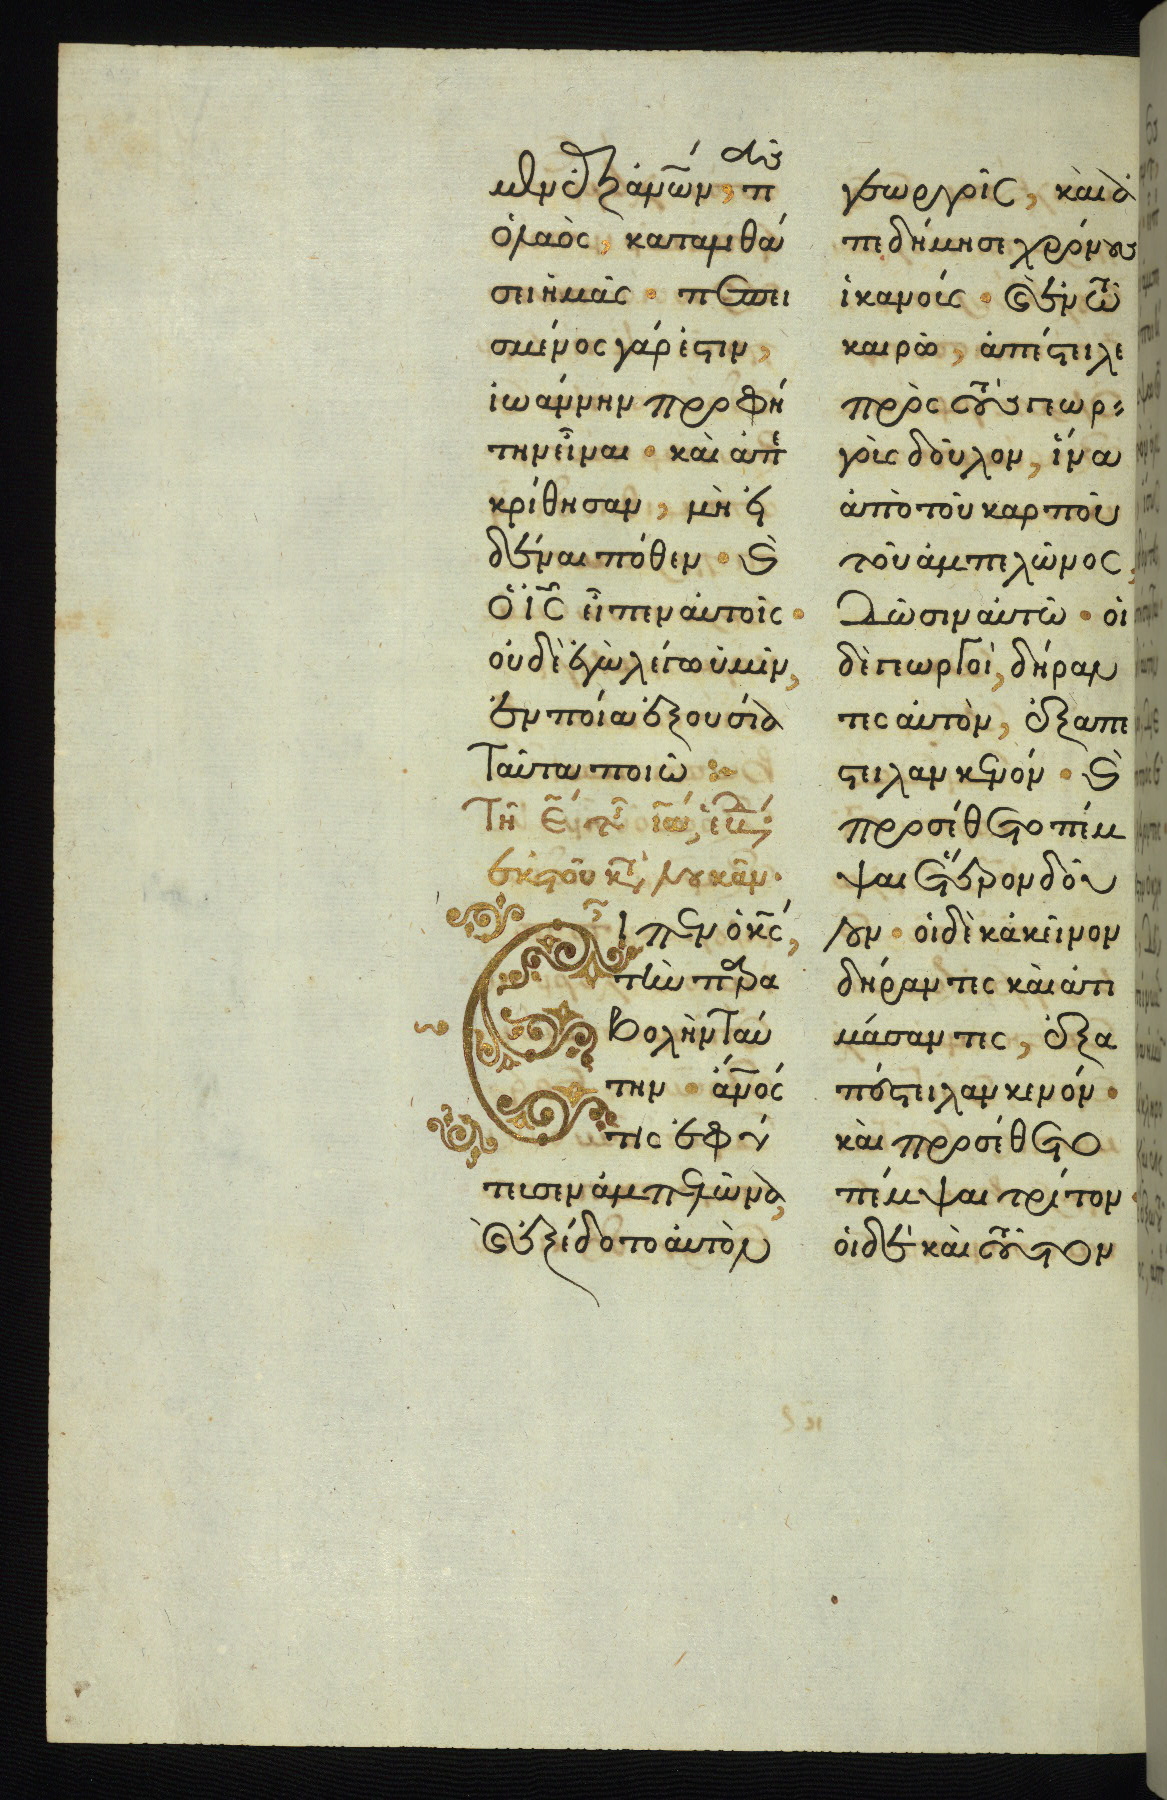 μεν ἐξ ἀν̅ων, πας
ὁ λαὸς, καταλιθά
σει ἡμᾶς · πεπει
σμένος γάρ ἐστιν,
ἰωάννην προφή
την εἶναι · καὶ ἀπε
κρίθησαν, μὴ εἰ
δέναι πόθεν · καὶ
ὁ ι̅ς̅ εἶπεν αὐτοῖς ·
οὐδὲ ἐγὼ λέγω ὑμῖν,
ἐν ποία ἐξουσία
ταῦτα ποιῶ :~
ἐκ τοῦ κατὰ λουκᾶν.
Εἶπεν ὁ κ̅ς̅,
τὴν παρα
βολὴν ταύ
την · ἄν̅ος
τις ἐφύ
τευσεν ἀμπελῶνα,
καὶ ἐξέδοτο αὐτὸν
γεωργοῖς, καὶ ἀ
πεδήμησε χρόνους
ἱκανούς · καὶ ἐν τῶ
καιρῶ, ἀπέστειλε
πρὸς τοὺς γεωρ-
γοὺς δοῦλον, ἵνα
ἀπὸ τοῦ καρποῦ
τοῦ ἀμπελῶνος,
δῶσιν αὐτῶ · οἱ
δὲ γεωργοὶ, δήραν
τες αὐτὸν, ἐξαπέ
στειλαν κενόν · καὶ
προσέθετο πέμ
ψαι ἕτερον δοῦ
λον · οἱ δὲ κἀκεῖνον
δήραντες καὶ ἀτι
μάσαντες, ἐξα
πέστειλαν κενόν ·
καὶ προσέθετο
πέμψαι τρίτον ·
οἱ δὲ καὶ τοῦτον